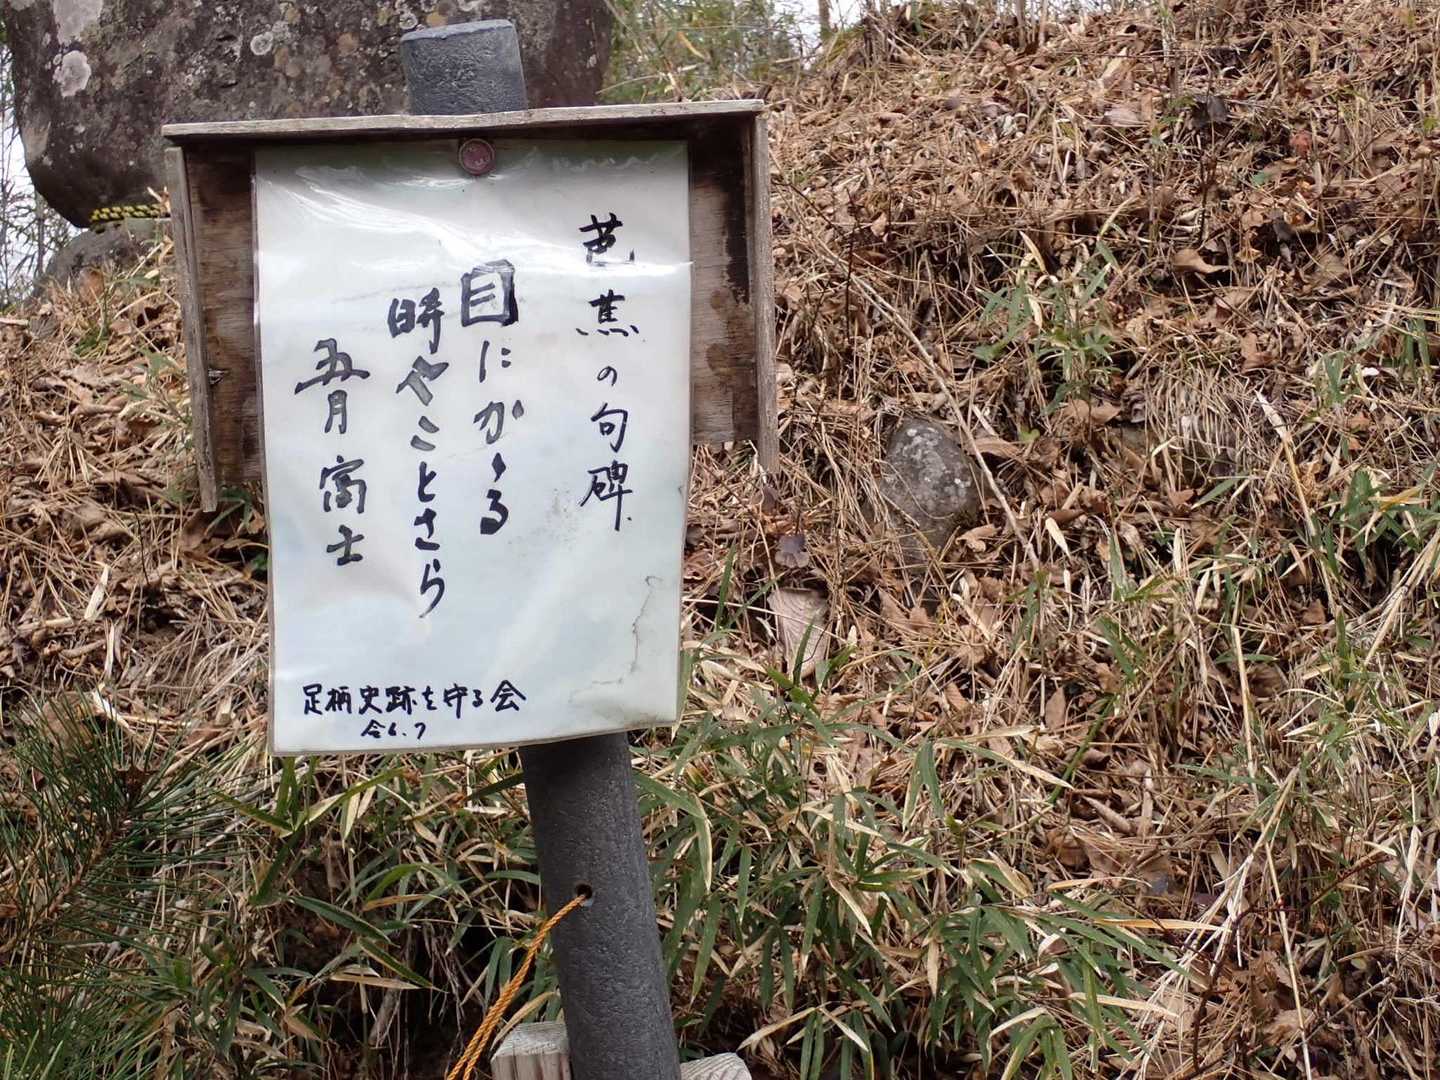 芭蕉の句碑
目にかゝる
時やことさら
五月富士
足柄史跡を守る会
令6.7